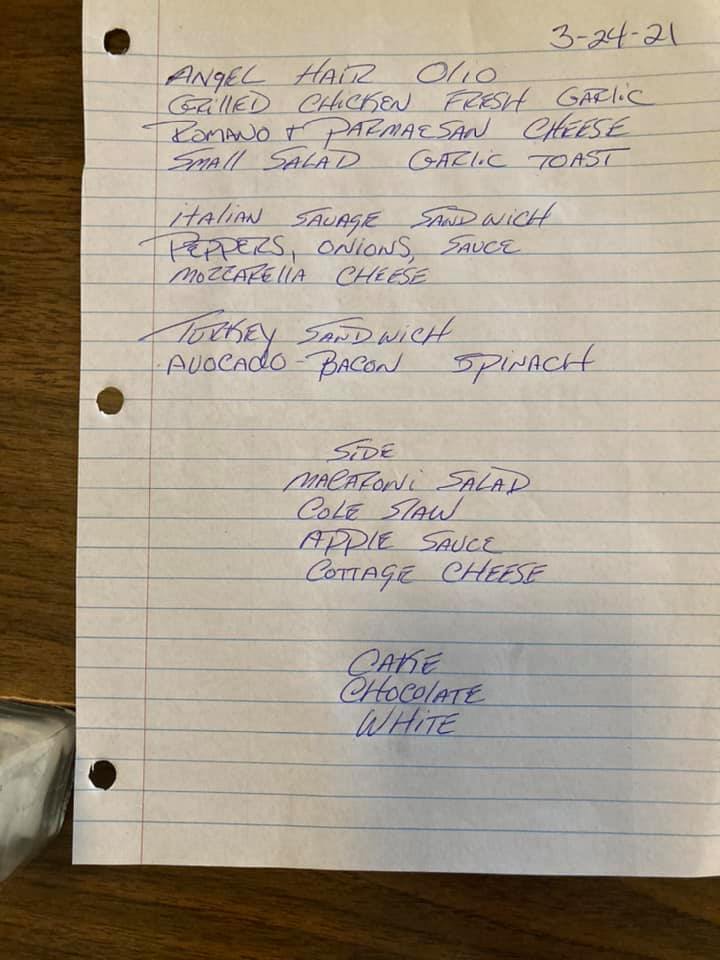 3-24-21
ANGEL HAIR OLIO
GRILLED CHICKEN FRESH GARLIC
ROMANO + PARMAESAN CHEESE
SMALL SALAD GARLIC TOAST
ITALIAN SAUAGE SANDWICH
PEPPERS, ONIONS, SAUCE
MOZZARELLA CHEESE
TURKEY SANDWICH
AVOCADO - BACON SPINACH
SIDE
MACARONI SALAD
COLE SLAW
APPLE SAUCE
COTTAGE CHEESE
CAKE
CHOCOLATE
WHITE